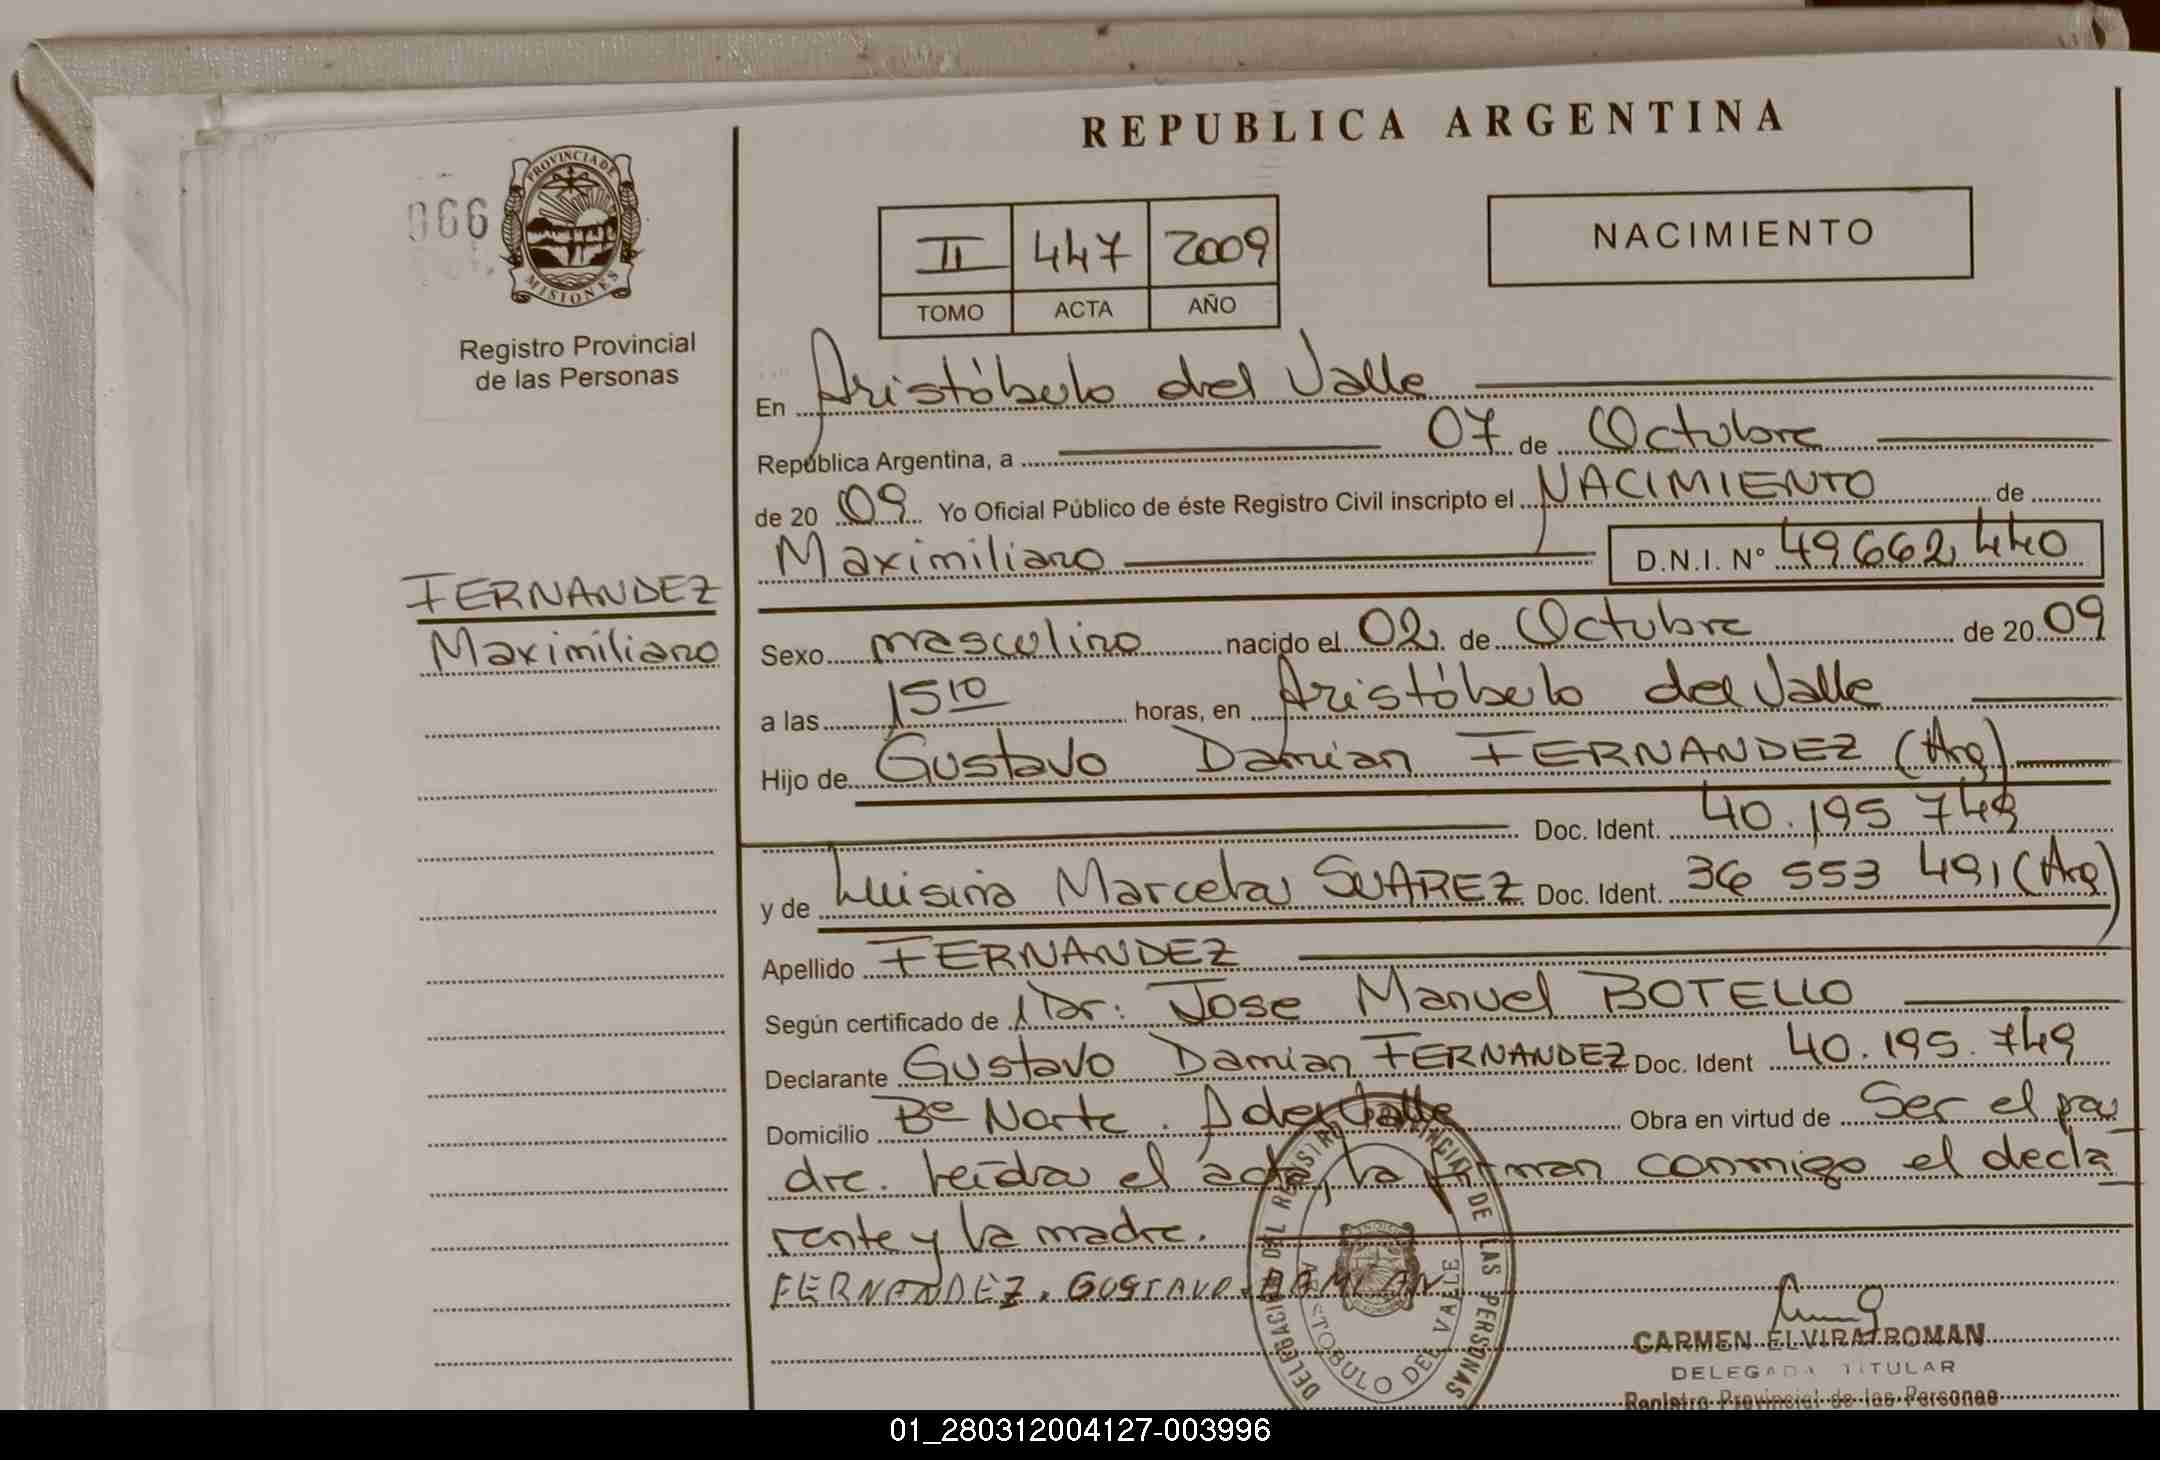 REPUBLICA ARGENTINA
066
PROVINCIA DE
MISIONES
Registro Provincial
de las Personas
II 447 2009
TOMO ACTA AÑO
NACIMIENTO
En Aristóbulo del Valle
República Argentina, a 07 de Octubre
de 20 09 Yo Oficial Público de éste Registro Civil inscripto el NACIMIENTO de
Maximiliano D.N.I. Nº 49.662.440
FERNANDEZ
Maximiliano
Sexo masculino nacido el 02 de Octubre de 20 09
a las 15 10 horas, en Aristóbulo del Valle
Hijo de Gustavo Damian FERNANDEZ (Arg)
Doc. Ident. 40.195 749
y de Luisina Marcela SUAREZ Doc. Ident. 36 553 491 (Arg)
Apellido FERNANDEZ
Según certificado de Dr: Jose Manuel BOTELLO
Declarante Gustavo Damian FERNANDEZ Doc. Ident 40.195.749
Domicilio Bº Norte. A del Valle Obra en virtud de Ser el pa
dre. Leída el acta, la firman conmigo el decla
rante y la madre.
FERNANDEZ. GUSTAVO DAMIAN
DELEGACION DEL REGISTRO PROVINCIAL DE LAS PERSONAS
ARISTOBULO DEL VALLE
CARMEN ELVIRA ROMAN
DELEGADA TITULAR
Registro Provincial de las Personas
01_280312004127-003996